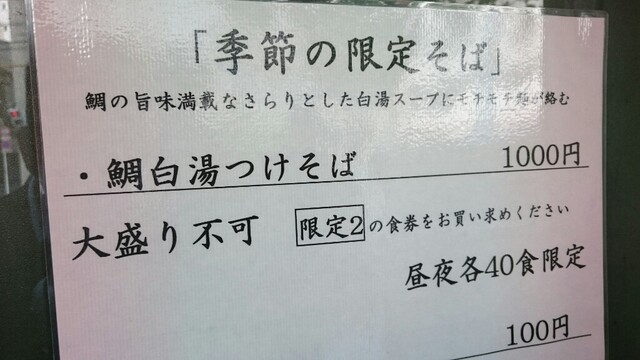 「季節の限定そば」
鯛の旨味満載なさらりとした白湯スープにモチモチ麺が絡む
・鯛白湯つけそば 1000円
大盛り不可 限定2の食券をお買い求めください
昼夜各40食限定
100円